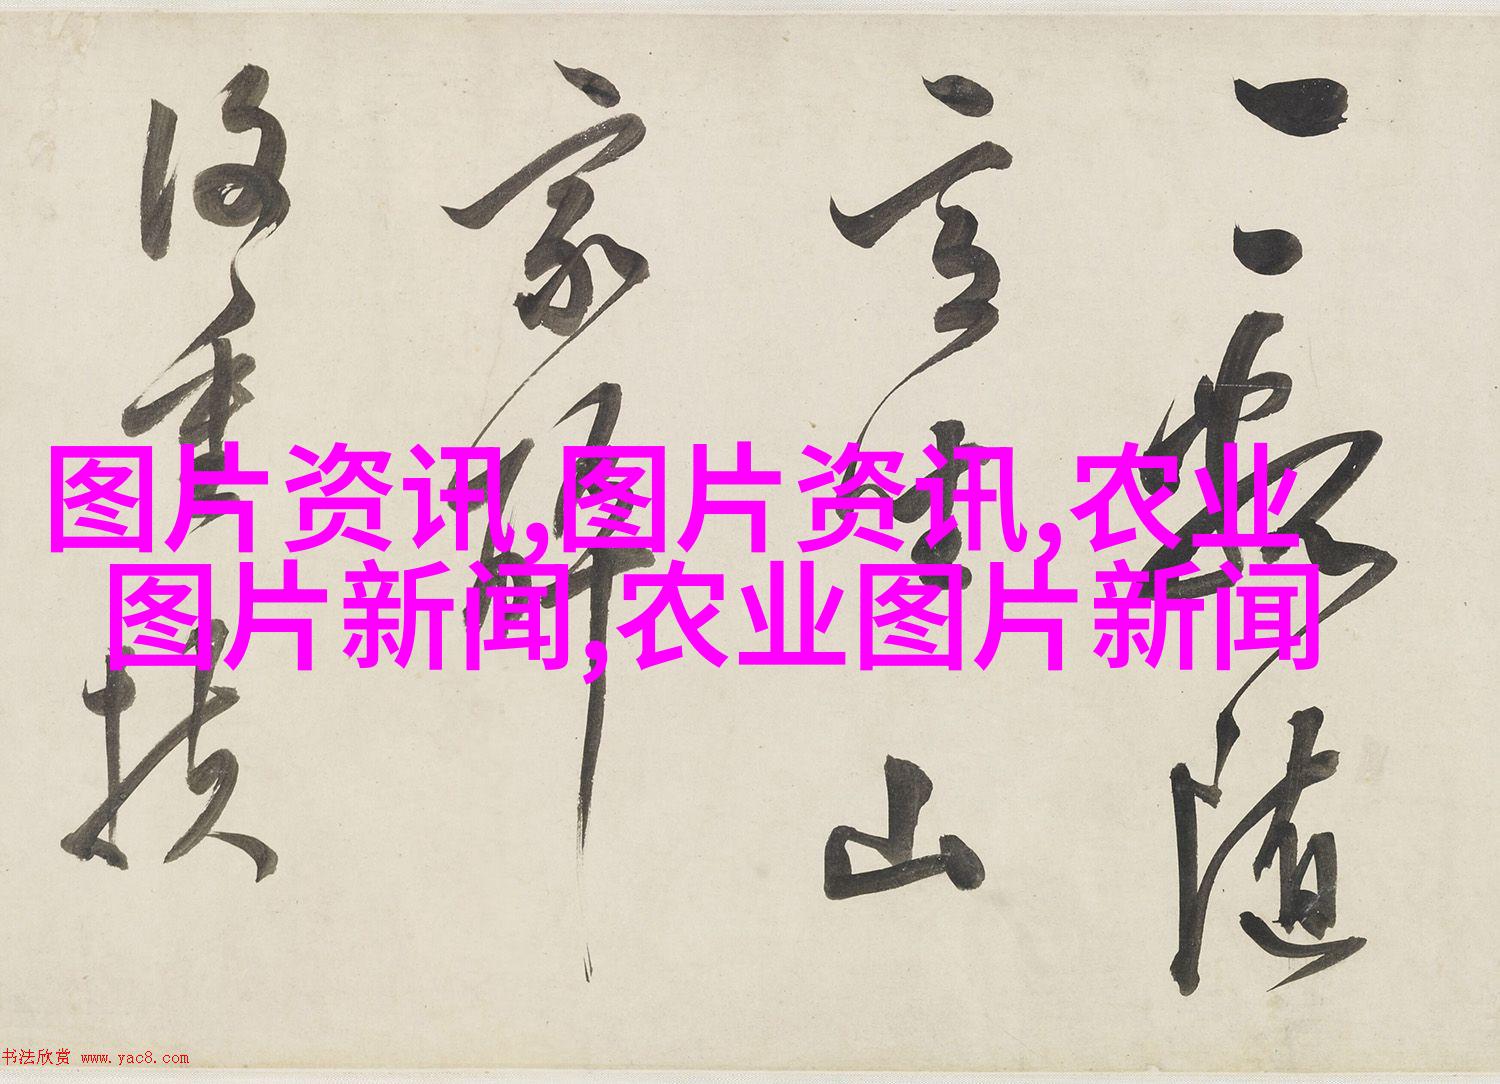 一一無随
言
山
家
後重扶
图片资讯,图片资讯,农业
图片新闻,农业图片新闻
书法欣赏 www.yac8.com